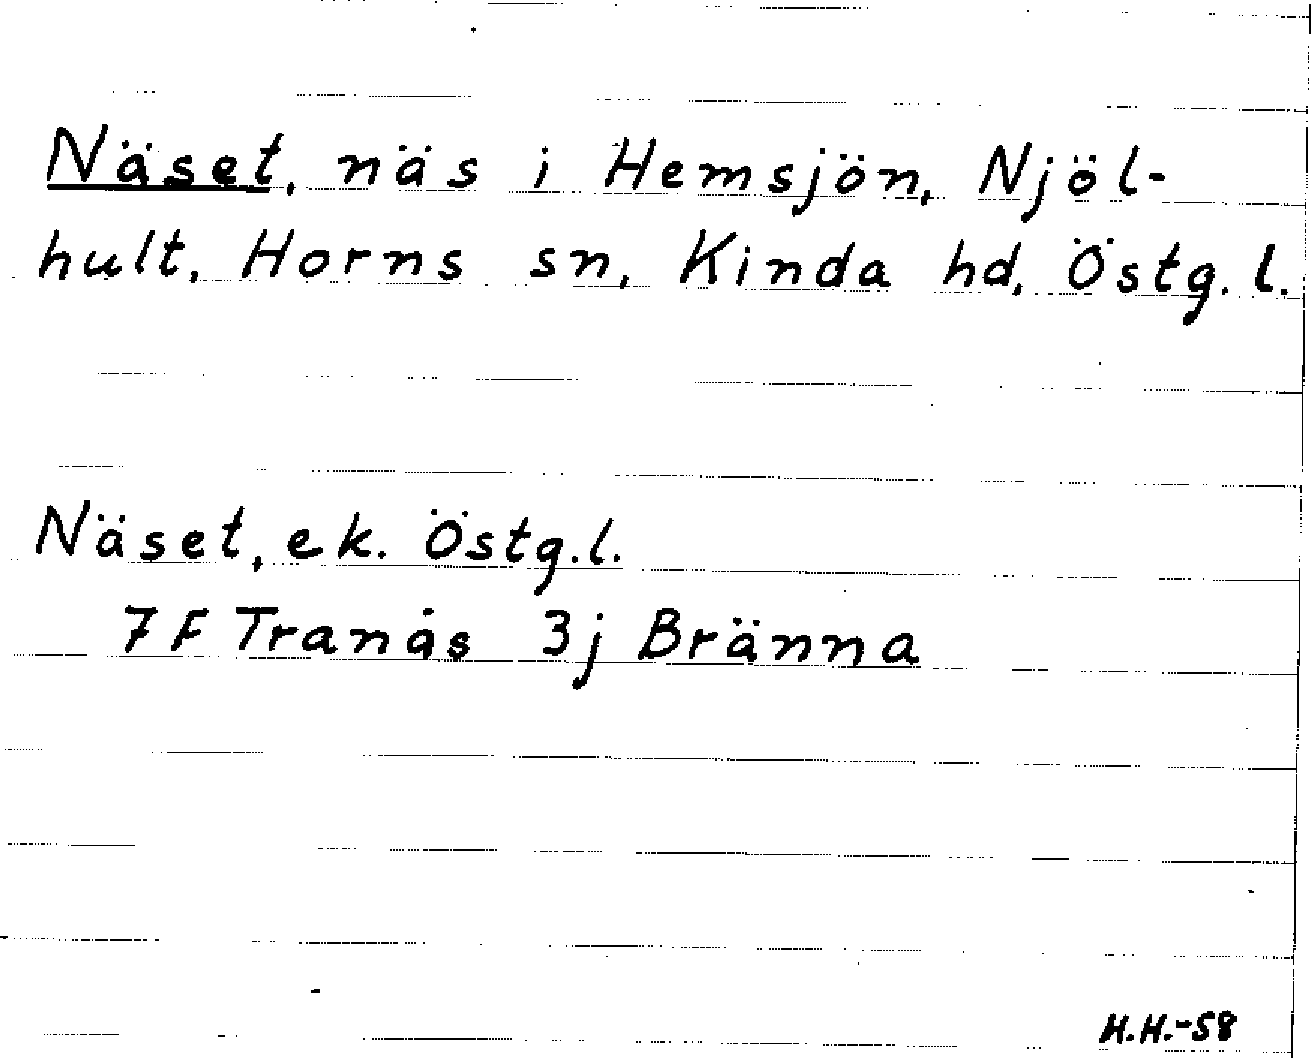 Näset, näs i Hemsjön, Njöl-
hult, Horns sn, Kinda hd, Östg. l.
Näset, ek. Östg.l.
7F Tranås 3j Bränna
H.H.-58